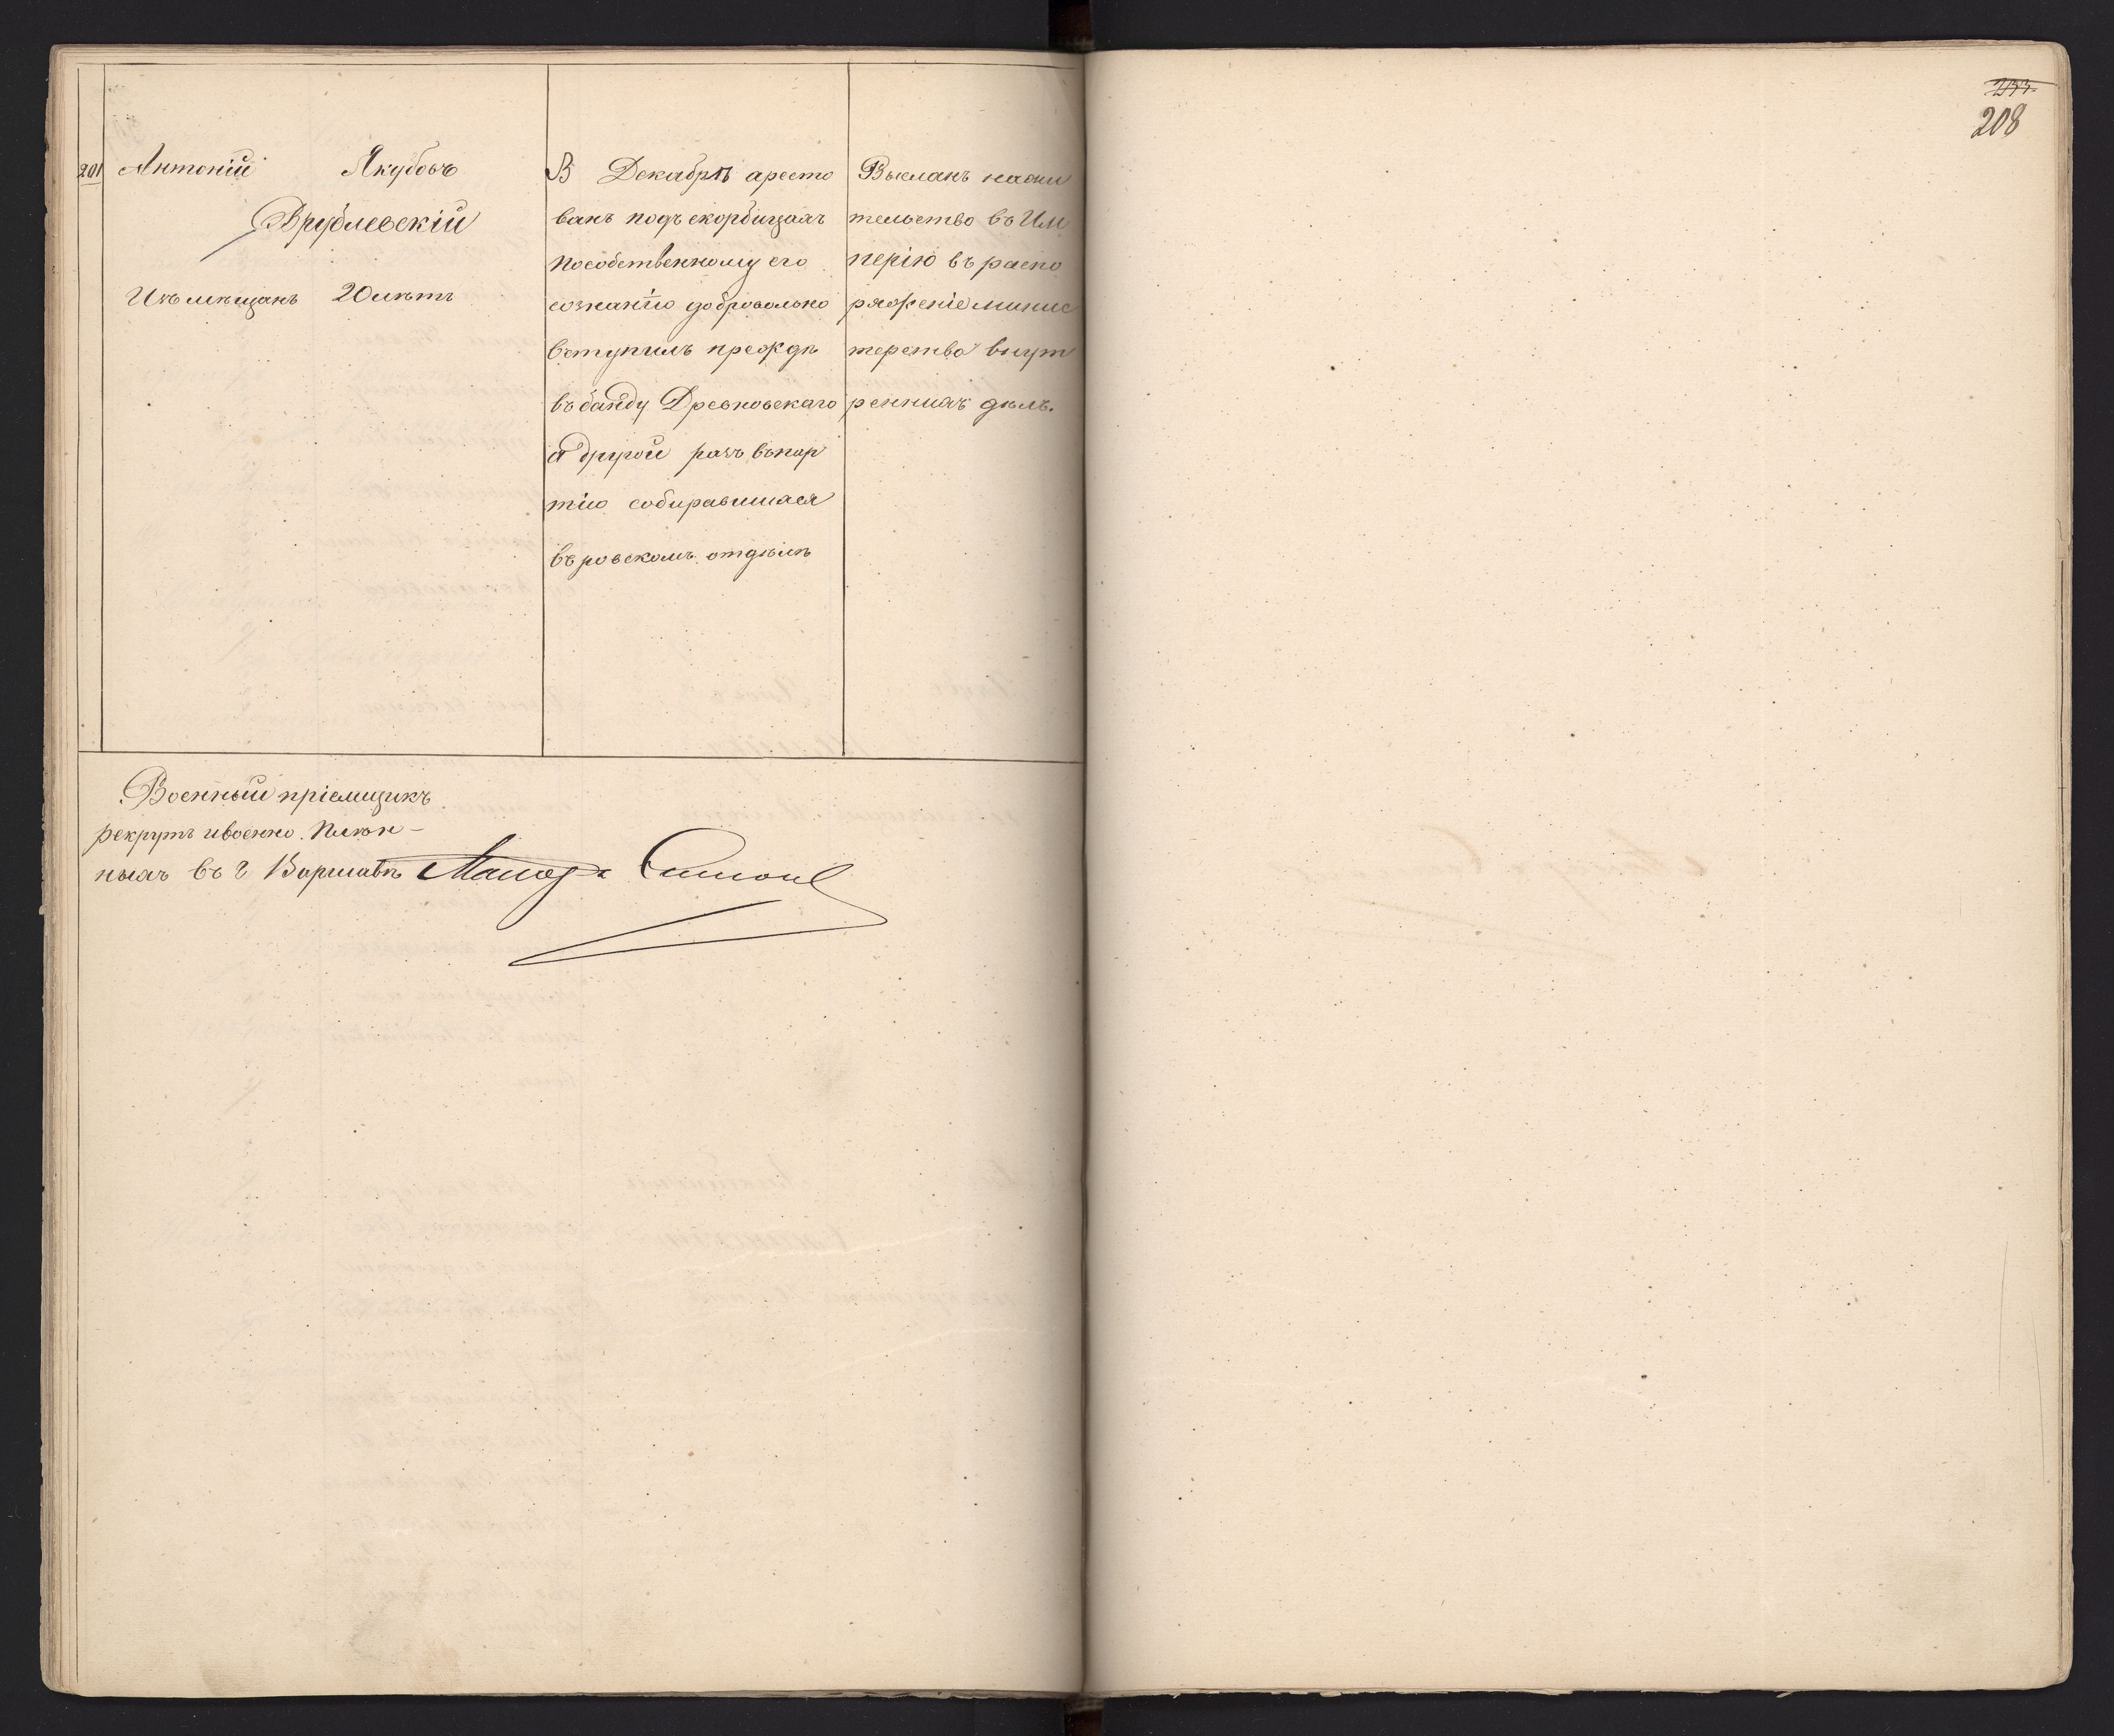 201 Антоній Якубовъ
Врублевскій
Изъ мѣщанъ 20 лѣтъ
В Декабрѣ аресто
ванъ подъ скорбицахъ
пособственному его
сознанію добровольно
вступилъ преждѣ
въ банду Древновскаго
а другой разъ въпар
тію собиравшаяся
въ ровскомъ отдѣлѣ
Высланъ нажи
тельство въ Им
перію въ распо
ряженіе минис
терства внут
реннихъ дѣлъ.
Военный пріемщикъ
рекрутъ ивоенно. Плѣн-
ныхъ въ г Варшавѣ Маіоръ
208